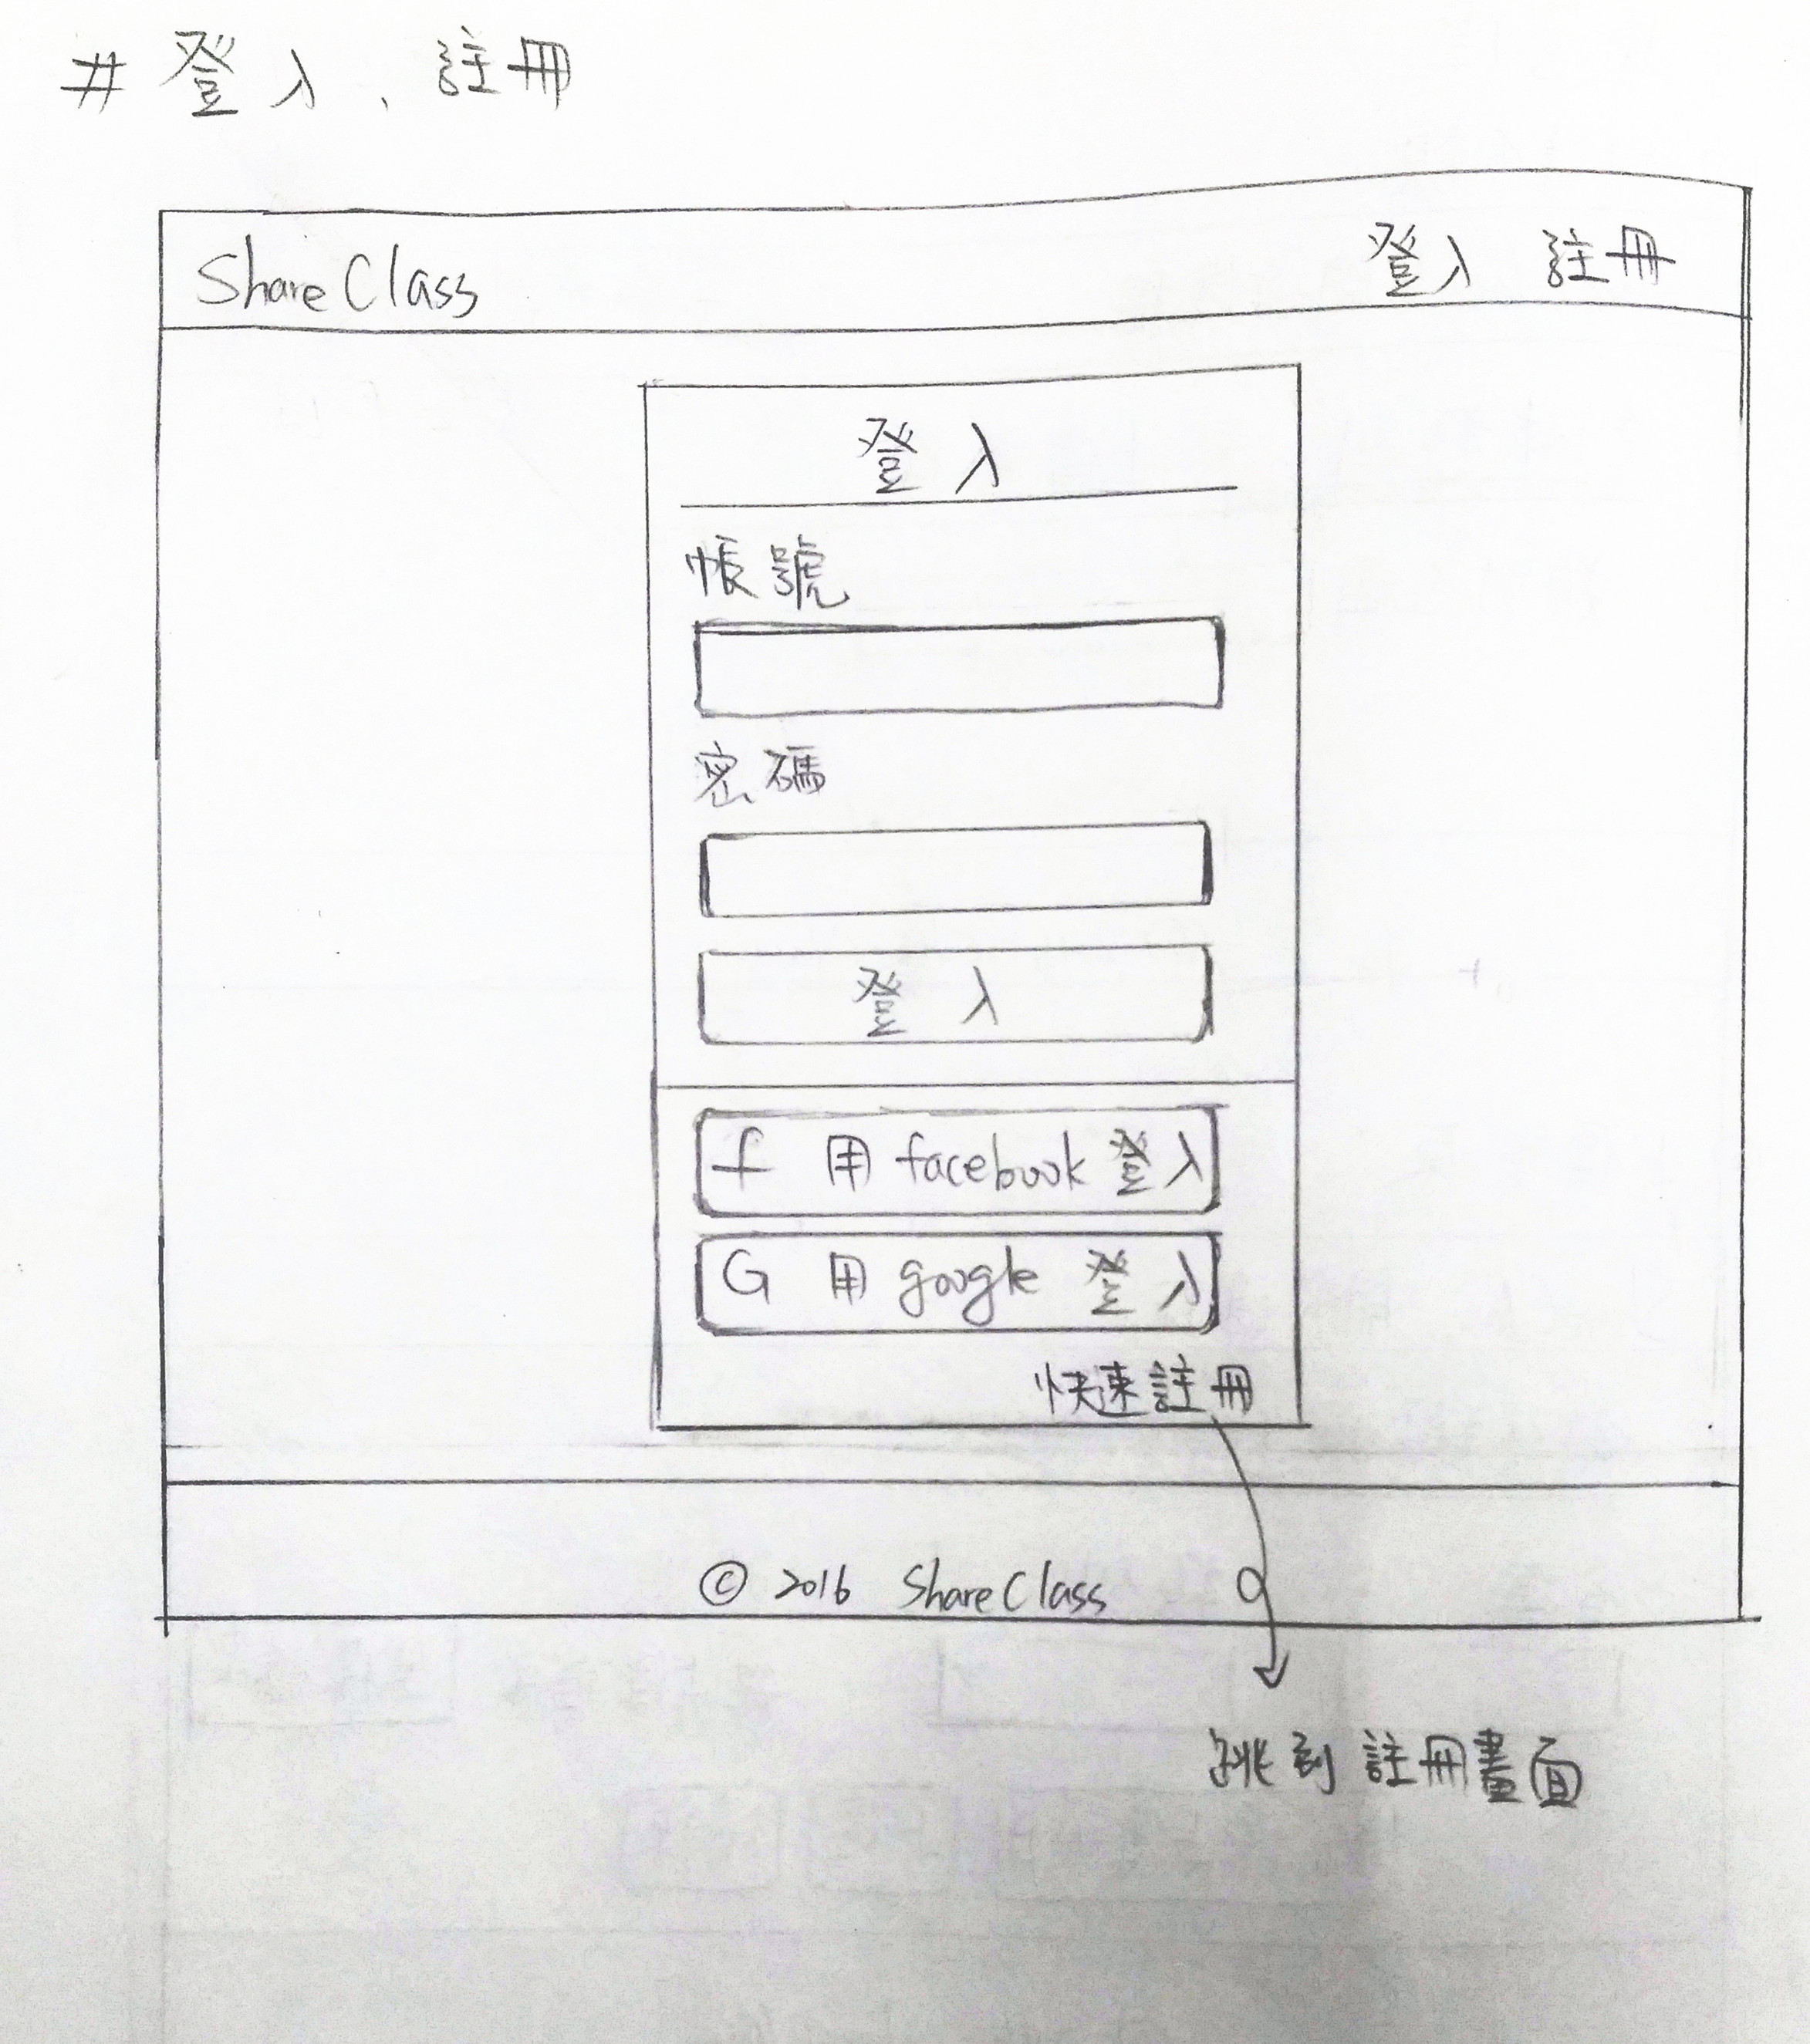 # 登入、註冊
ShareClass 登入 註冊
登入
帳號
密碼
登入
f 用 facebook 登入
G 用 google 登入
快速註冊
© 2016 ShareClass
跳到註冊畫面